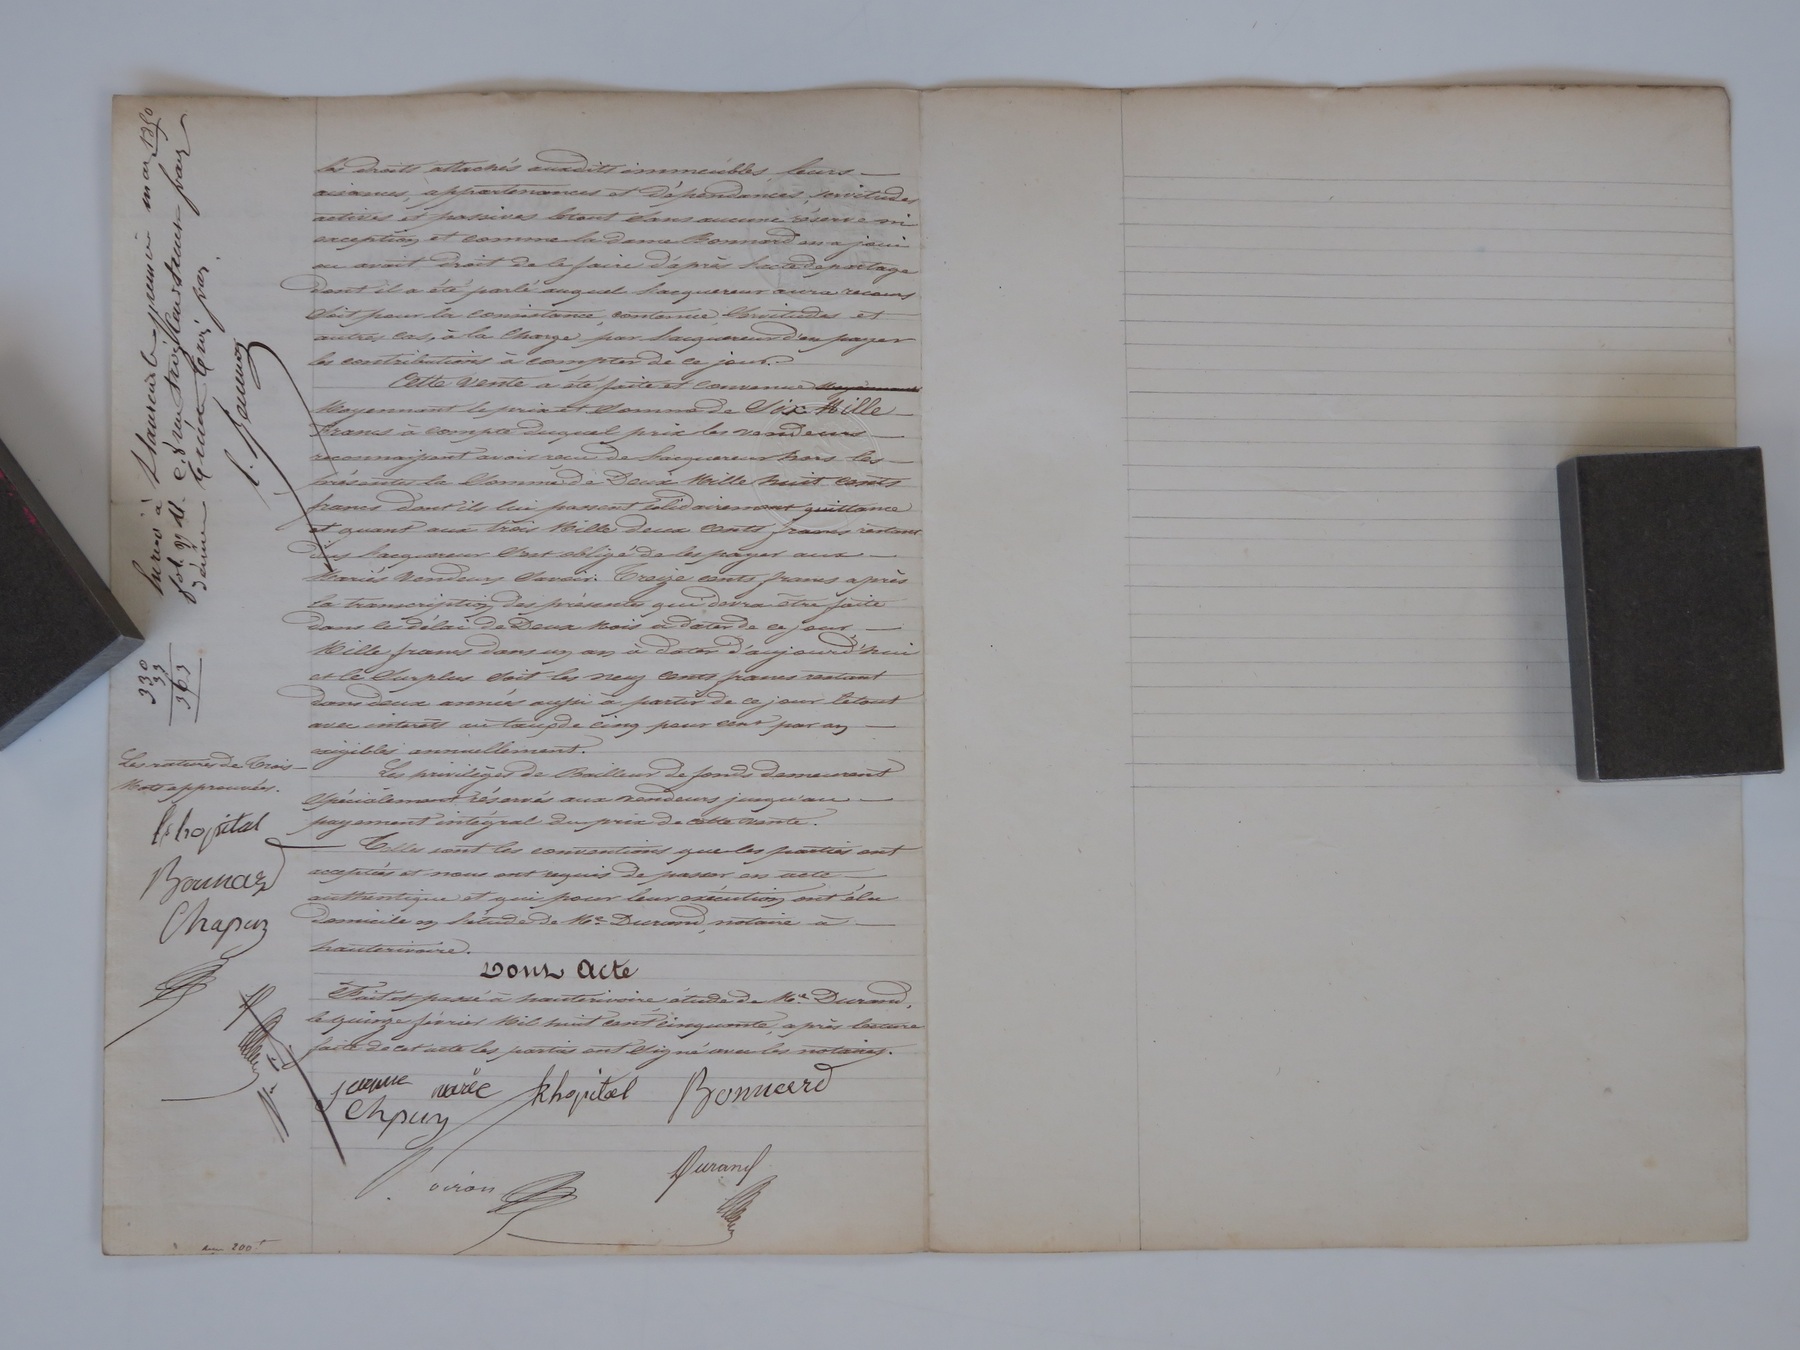 les droits attachés auxdits immeubles leurs
aisances, appartenances et dépendances, servitudes
actives et passives letout sans aucune réserve ni
exception, et comme la dame Bonnard en a joui
ou avait droit de le faire d'après l'acte de partage
dont il a été parlé auquel l'acquéreur aura recours
soit pour la consistance, contenue, servitudes et
autres cas, à la charge, par l'acquéreur d'en payer
les contributions à compter de ce jour.
Cette vente a été faite et convenue
Moyennant le prix et somme de Six Mille
francs à compte duquel prix les vendeurs
reconnaissent avoir reçu de l'acquéreur hors les
présentes la somme de Deux Mille huit cents
francs dont ils lui passent solidairement quittance
et quant aux trois Mille deux cents francs restant
dûs l'acquéreur s'est obligé de les payer aux
Mariés Vendeurs savoir: Treize cents francs après
la transcription des présentes qui devra être faite
dans le délai de Deux Mois à dater de ce jour
Mille francs dans un an à dater d'aujourd'hui
et le surplus soit les neuf cents francs restant
dans deux années aussi à partir de ce jour letout
avec intérêts au taux de cinq pour cent par an
exigibles annuellement.
Les privilèges de Bailleur de fonds demeurent
spécialement réservés aux vendeurs jusqu'au
payement intégral du prix de cette vente.
Telles sont les conventions que les parties ont
acceptées et nous ont requis de passer en acte
authentique et qui pour leur exécution ont élu
domicile en l'étude de Me Durand, notaire à
hauterivoire.
Dont Acte
Fait et passé à hauterivoire étude de Me Durand,
le quinze février Mil huit cent cinquante, après lecture
faite de cet acte les parties ont signé avec les notaires.
jeanne marie Lhopital Bonnard
Chpuy
Durand
Les ratures de trois
Mots approuvées.
Lhopital
Bonnard
Chapuy
330
33
363